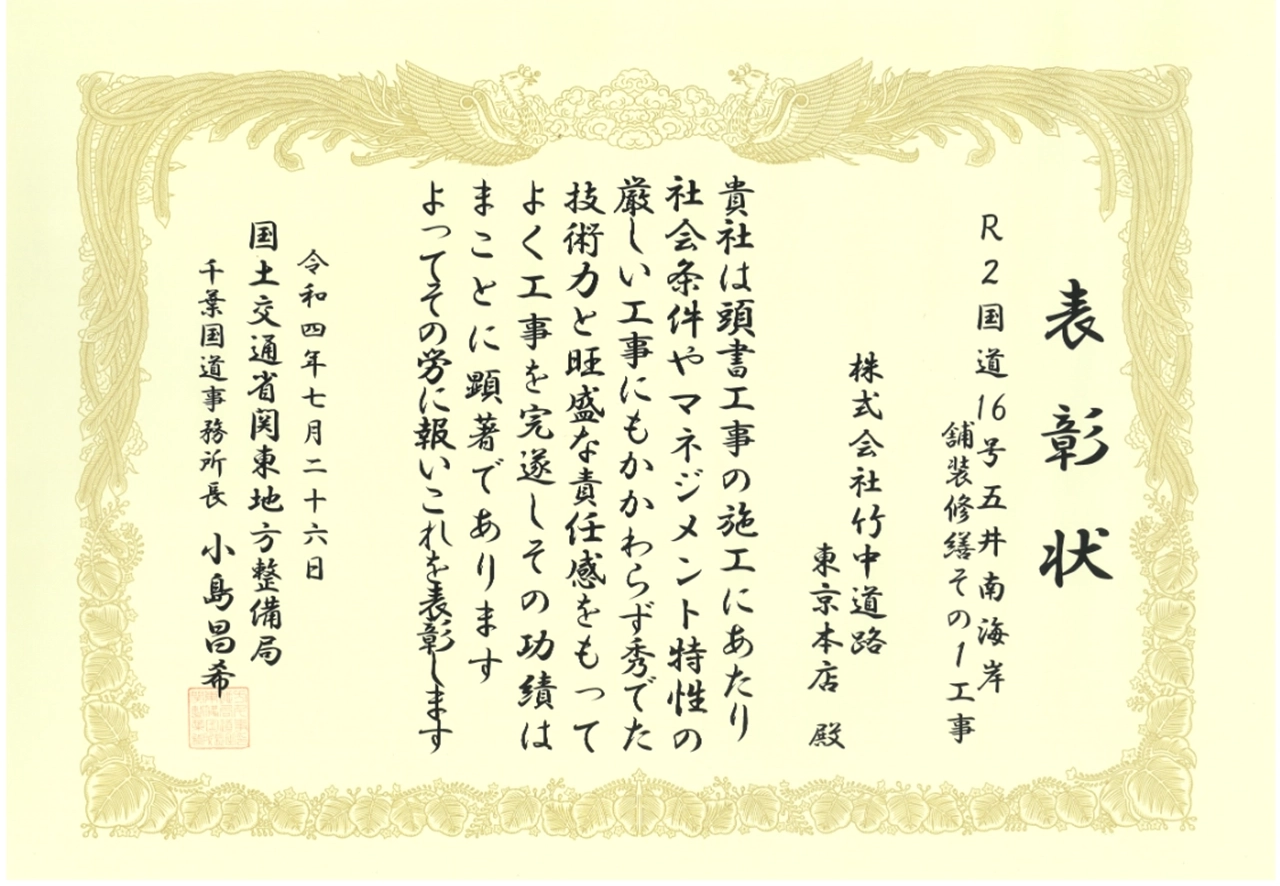 表彰状
R2国道16号五井南海岸
舗装修繕その1工事
株式会社竹中道路
東京本店 殿
貴社は頭書工事の施工にあたり
社会条件やマネジメント特性の
厳しい工事にもかかわらず秀でた
技術力と旺盛な責任感をもって
よく工事を完遂しその功績は
まことに顕著であります
よってその労に報いこれを表彰します
令和四年七月二十六日
国土交通省関東地方整備局
千葉国道事務所長 小島昌希